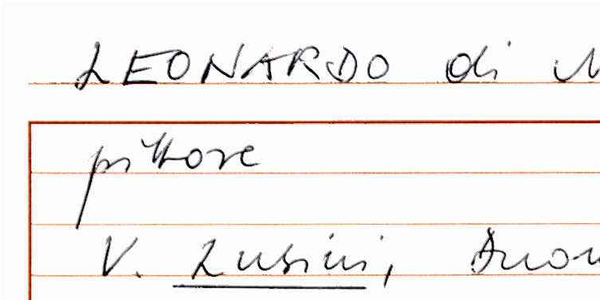 LEONARDO di
pittore
V. Lusini, Duom